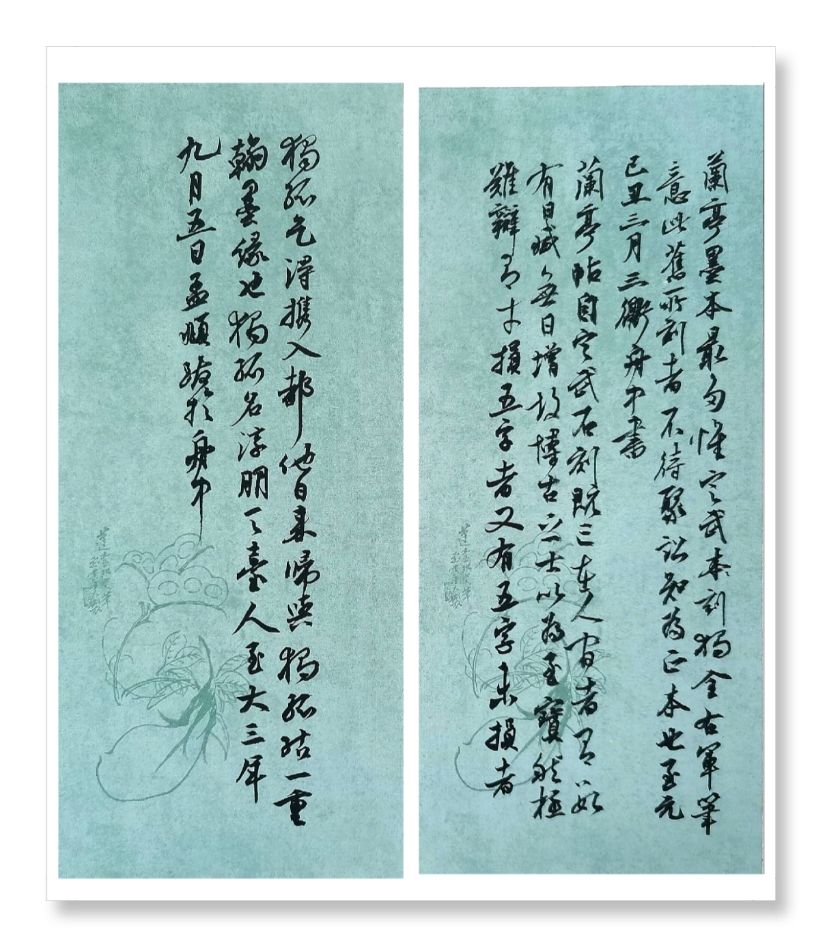 蘭亭墨本最多惟定武本刻獨全右軍筆
意此舊所刻者不待聚訟知為正本也至元
己丑三月三衢舟中書
蘭亭帖自定武石刻既亡在人間者有數
有日減無日增故博古之士以為至寶然極
難辨有才損五字者又有五字未損者
獨孤乞得攜入都他日來歸與獨孤結一重
翰墨緣也獨孤名淳朋天臺人至大三年
九月五日孟頫跋於舟中